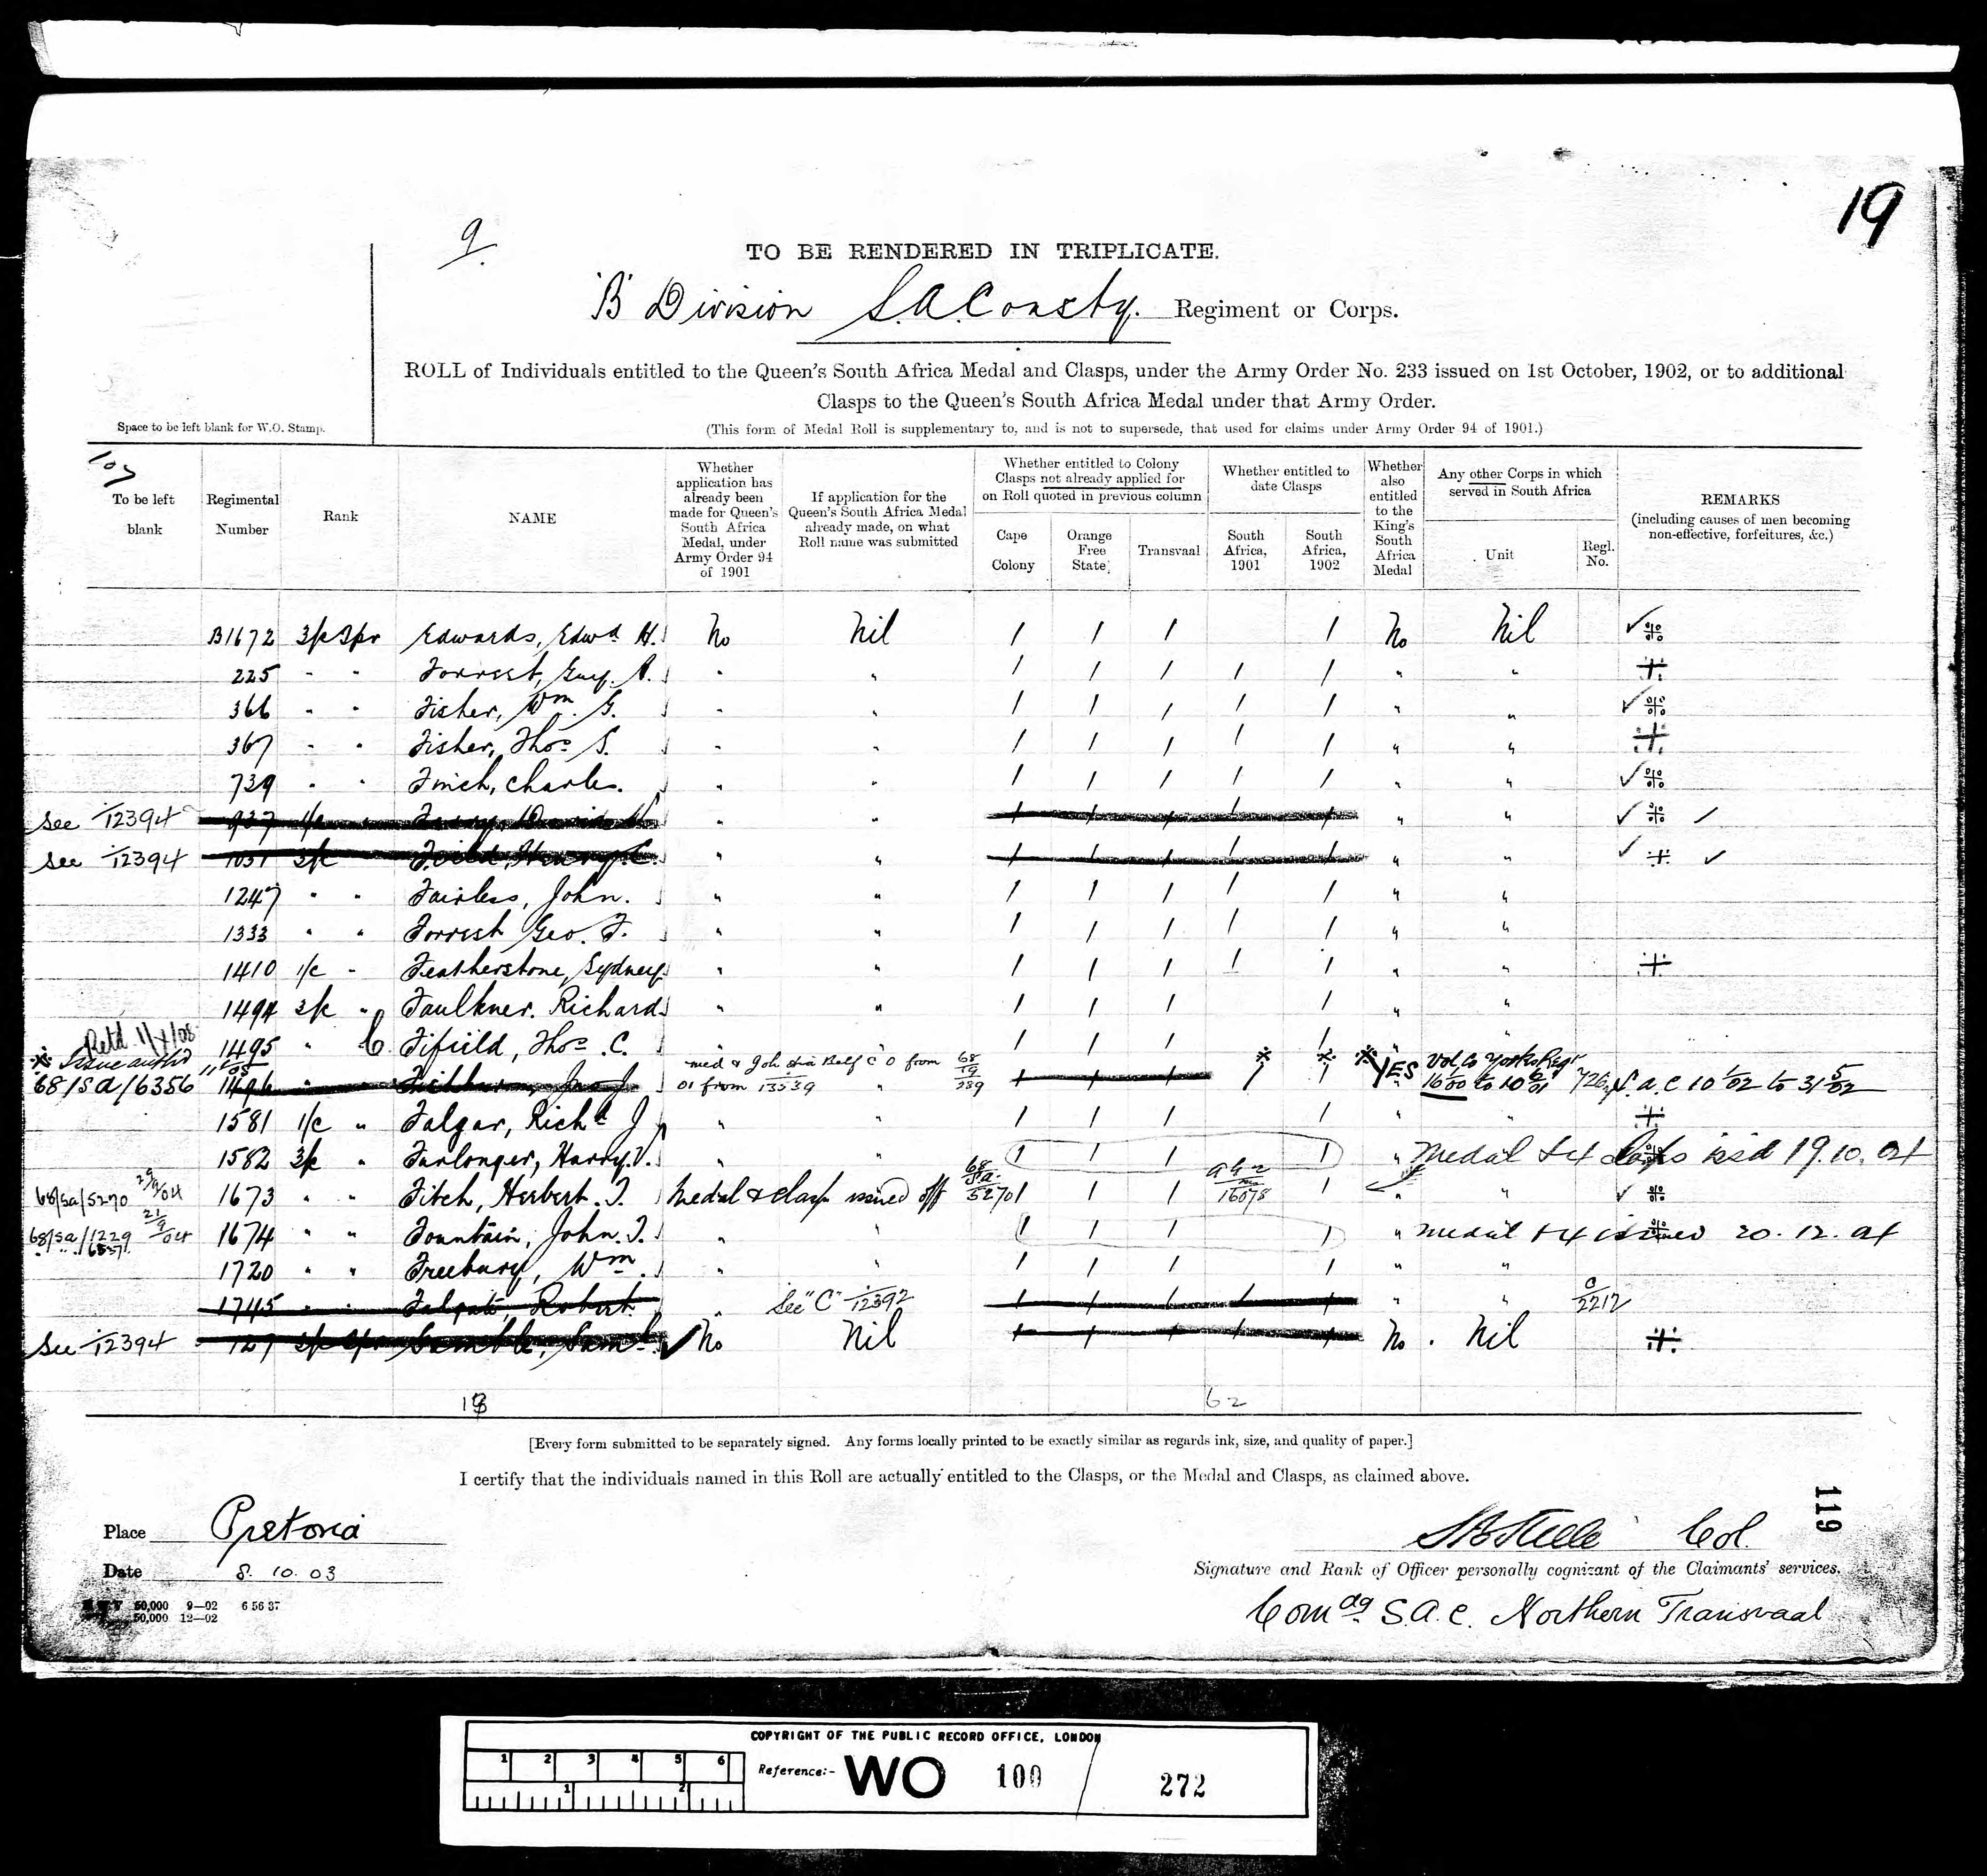 19
9.
TO BE RENDERED IN TRIPLICATE.
'B' Division S.A. Consty. Regiment or Corps.
ROLL of Individuals entitled to the Queen's South Africa Medal and Clasps, under the Army Order No. 233 issued on 1st October, 1902, or to additional
Clasps to the Queen's South Africa Medal under that Army Order.
(This form of Medal Roll is supplementary to, and is not to supersede, that used for claims under Army Order 94 of 1901.)
Space to be left blank for W.O. Stamp.
To be left blank
Regimental Number
Rank
NAME
Whether application has already been made for Queen's South Africa Medal, under Army Order 94 of 1901
If application for the Queen's South Africa Medal already made, on what Roll name was submitted
Whether entitled to Colony Clasps not already applied for on Roll quoted in previous column
Cape Colony
Orange Free State
Transvaal
Whether entitled to date Clasps
South Africa, 1901
South Africa, 1902
Whether also entitled to the King's South Africa Medal
Any other Corps in which served in South Africa
Unit
Regl. No.
REMARKS
(including causes of men becoming non-effective, forfeitures, &c.)
B1672 3/c Tpr Edwards, Edwd H. No Nil / / / / No Nil
225 " " Forrest, Guy. A. " " / / / / / " "
366 " " Fisher, Wm. G. " " / / / / / " "
367 " " Fisher, Thos S. " " / / / / / " "
739 " " Finch, Charles. " " / / / / / " "
See 12394 937 1/c " " " / / / / / " "
See 12394 1051 3/c Field, Henry C. " " / / / / / " "
1247 " " Fairless, John. " " / / / / / " "
1333 " " Forrest Geo. F. " " / / / / / " "
1410 1/c " Featherstone, Sydney " " / / / / / " "
1494 3/c " Faulkner. Richard " " / / / / " "
1495 " Fifield, Thos. C. " / / / / " "
68/SA/6356 1496 " " 01 from 13539 " / / / / / YES Vol Co Yorks Regt 16/00 to 10 6/01 S.A.C 10 1/02 to 31 5/02
1581 1/c " Falgar, Richd J " " / / / / " "
1582 3/c " Furlonger, Harry. V. " " / / / / " Medal & 4 clasps issd 19.10.04
68/SA/5270 1673 " " Fitch, Herbert. T. Medal & clasp issued off 68/SA/5270 / / / 16078 / " "
68/SA/1229 21/9/04 1674 " " Fountain, John. T. " " / / / / " Medal & 4 issued 20.12.04
1720 " " Freebury, Wm. " " / / / / " "
1745 " " Falgate, Robert " See "C" 12392 / / / / / " " C/2212
See 12394 127 3/c Tpr Gamble, Saml. No Nil / / / / / No Nil
62
[Every form submitted to be separately signed. Any forms locally printed to be exactly similar as regards ink, size, and quality of paper.]
I certify that the individuals named in this Roll are actually entitled to the Clasps, or the Medal and Clasps, as claimed above.
Place Pretoria
Date 8. 10. 03
50,000 9—02 6 56 37
50,000 12—02
S B Steele Col.
Signature and Rank of Officer personally cognizant of the Claimants' services.
Comdg S.A.C. Northern Transvaal
119
COPYRIGHT OF THE PUBLIC RECORD OFFICE, LONDON
1 2 3 4 5 6
1 2
Reference:- WO 100 / 272